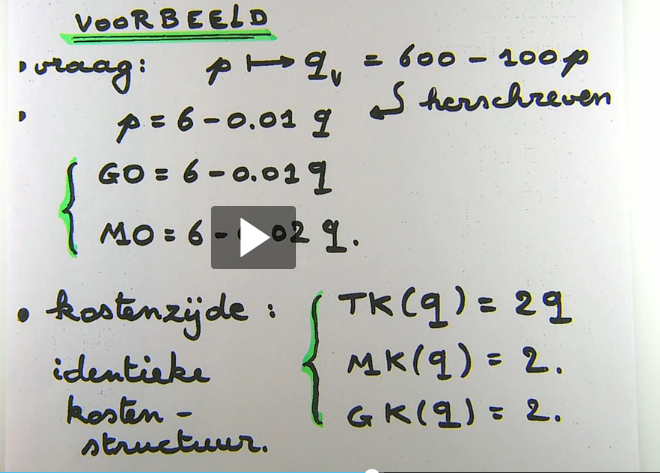 VOORBEELD
• vraag: p ↦ qᵥ = 600 - 100p
• p = 6 - 0.01 q ↲ herschreven
GO = 6 - 0.01 q
MO = 6 - 02 q.
• kostenzijde : TK(q) = 2q
identieke MK(q) = 2.
kosten - GK(q) = 2.
structuur.